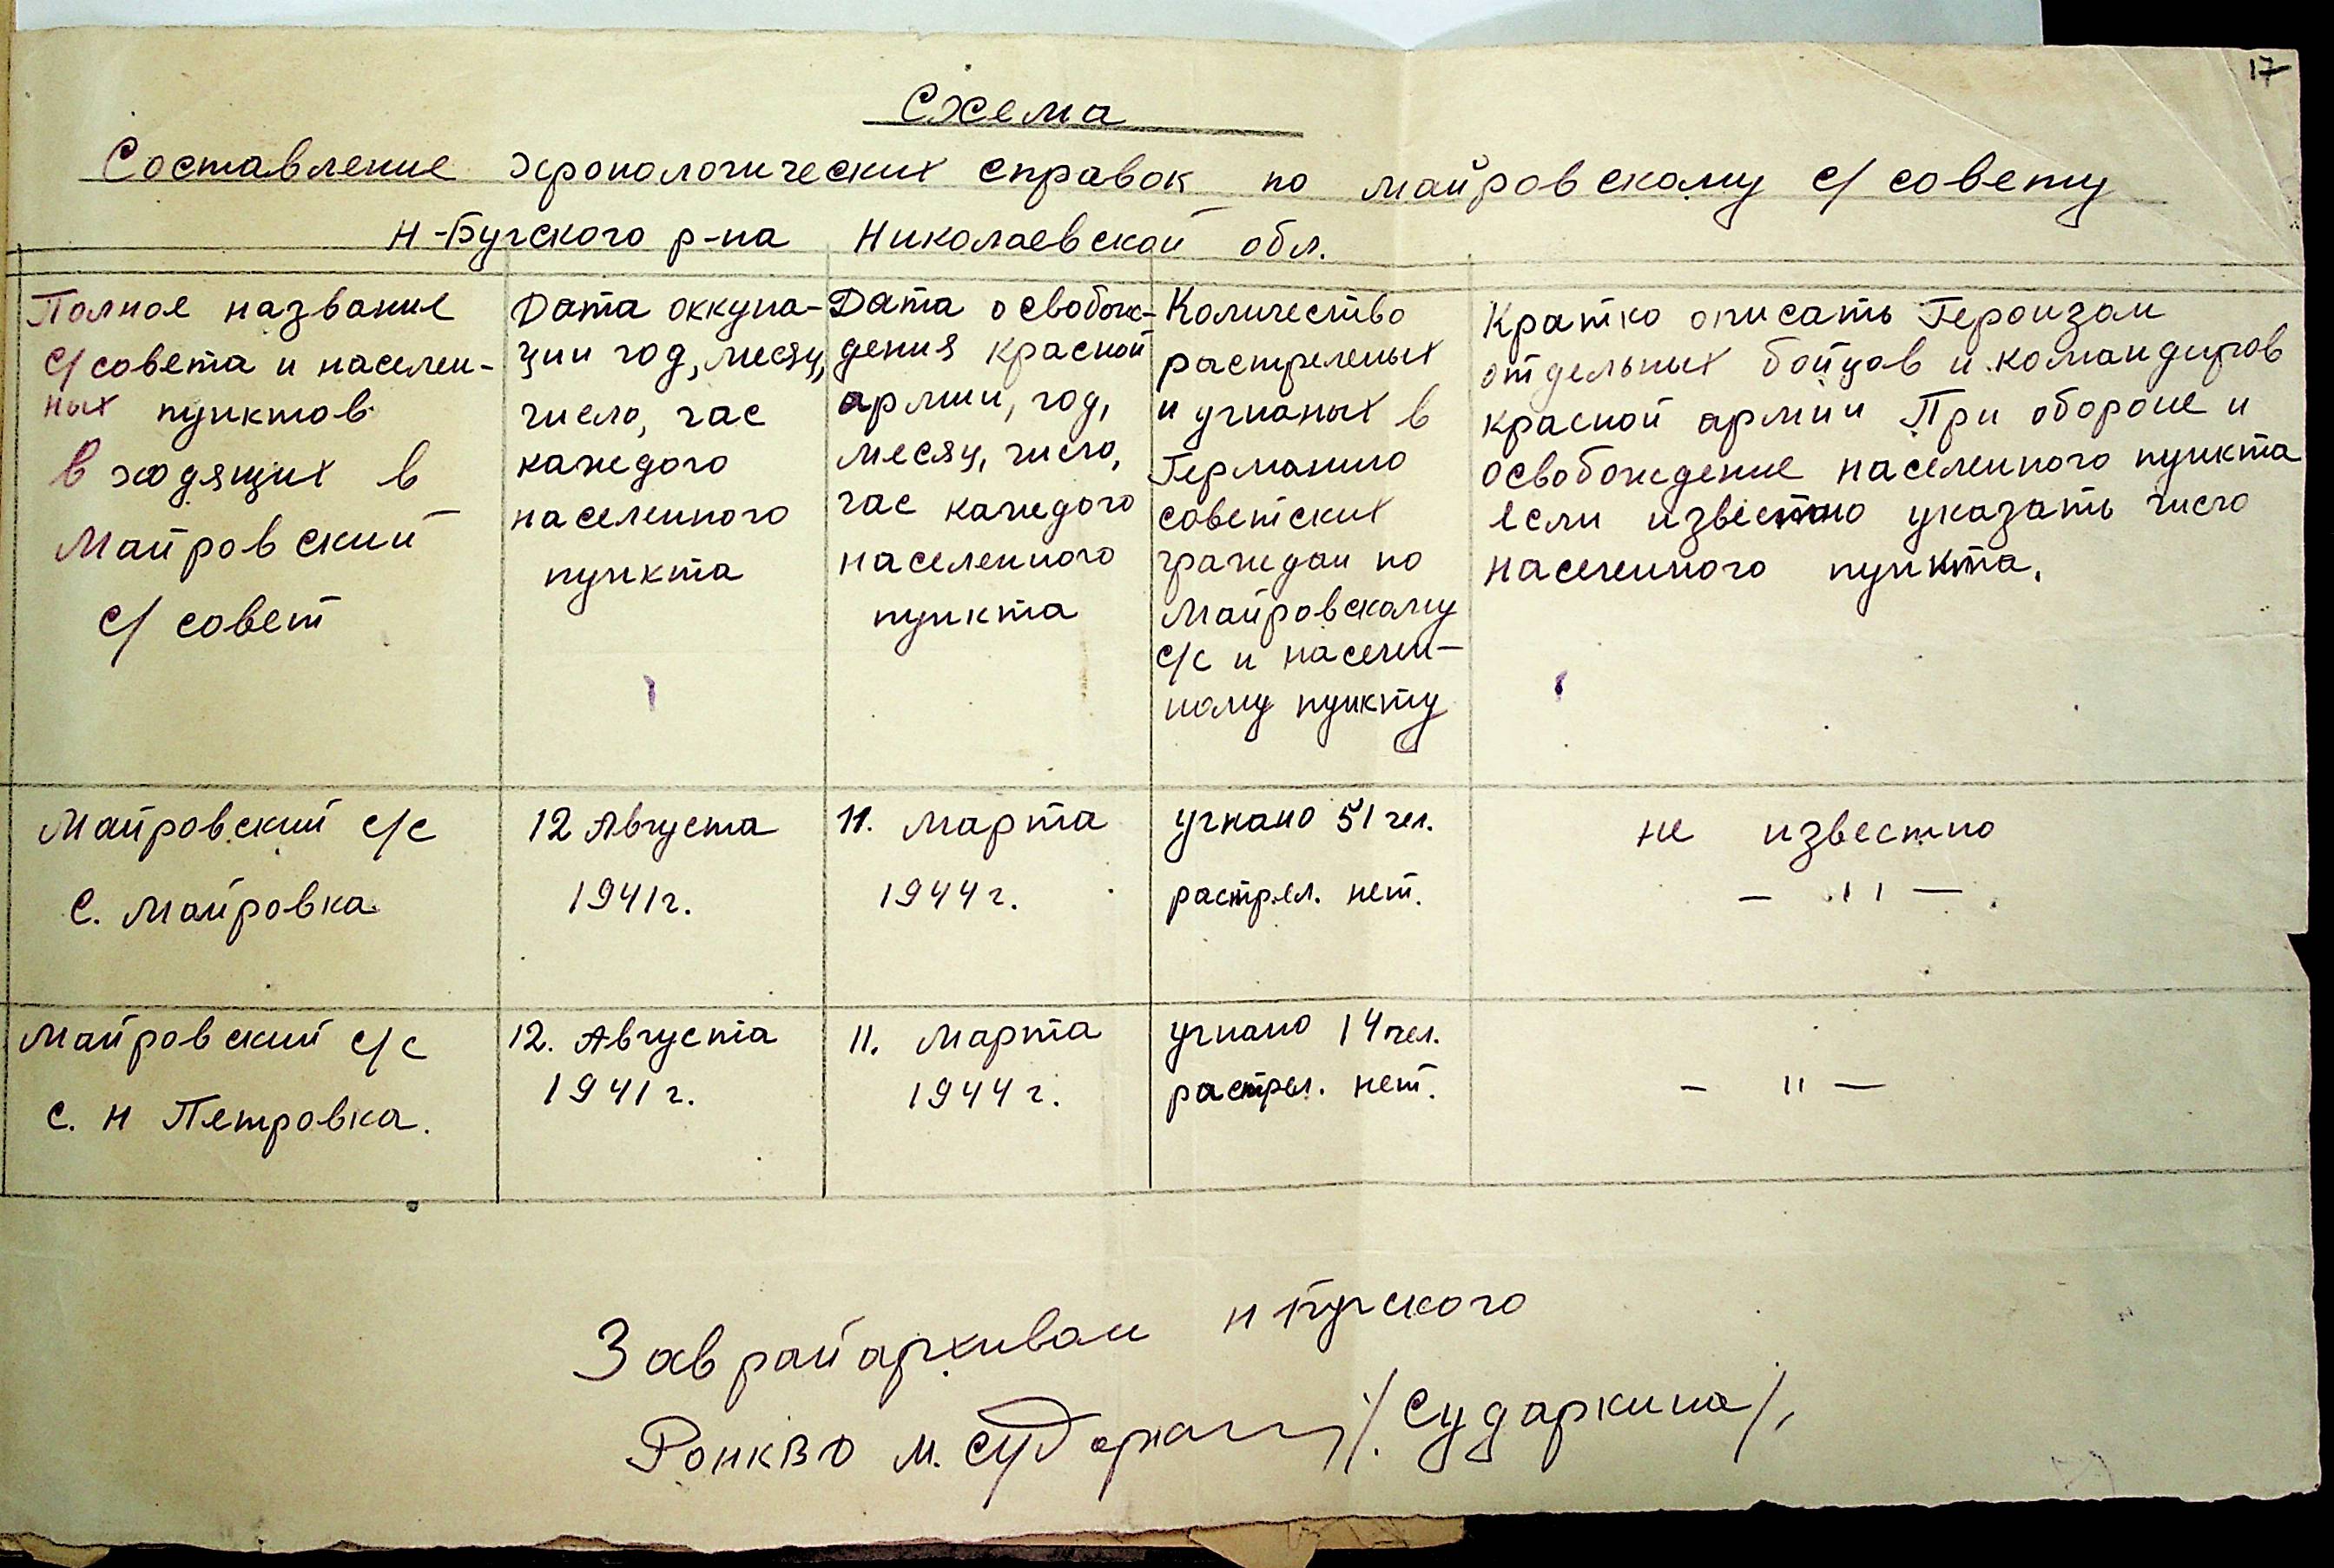 17
Схема
Составление хронологических справок по майровскому с/совету
Н-Бугского р-на Николаевской обл.
Полное название
с/совета и населен-
ных пунктов
входящих в
Майровский
с/совет
Дата оккупа-
ции год, месяц,
число, час
каждого
населенного
пункта
Дата освобож-
дения красной
армии, год,
месяц, число,
час каждого
населенного
пункта
Количество
растреленых
и угнаных в
Германию
советских
граждан по
Майровскому
с/с и населен-
ному пункту
Кратко описать Героизам
отдельных бойцов и командиров
красной армии При обороне и
освобождение населенного пункта
если известно указать число
населенного пункта.
Майровский с/с
с. Майровка
12 Августа
1941г.
11. Марта
1944г.
угнано 51 чел.
растрел. нет.
не известно
— " —
Майровский с/с
с. Н Петровка.
12. Августа
1941г.
11. Марта
1944г.
угнано 14 чел.
растрел. нет.
— " —
Зав райархивам Н Бугского
РОНКВД М. /Сударкина/